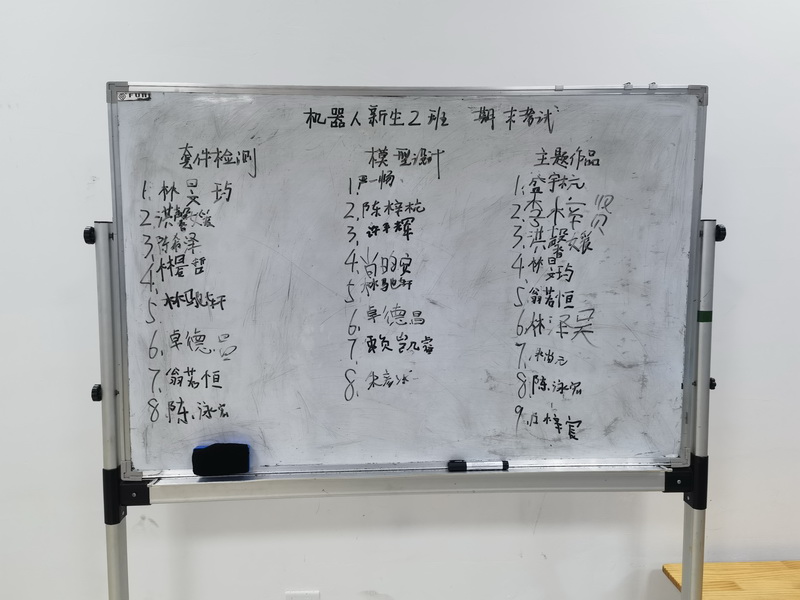 机器人新生2班 期末考试
套件检测
1. 林昊玙
2. 洪馨媛
3. 陈裕泽
4. 林晨哲
5. 林驰轩
6. 卓德昌
7. 翁若恒
8. 陈泳宏
模型设计
1. 严一畅
2. 陈梓杭
3. 许平辉
4. 尚昀安
5. 林驰轩
6. 卓德昌
7. 赖凯霖
8.
主题作品
1. 宇杭
2. 李梓贤
3. 洪馨媛
4. 林昊玙
5. 翁若恒
6. 林泽昊
7.
8. 陈泳宏
9. 梓宸